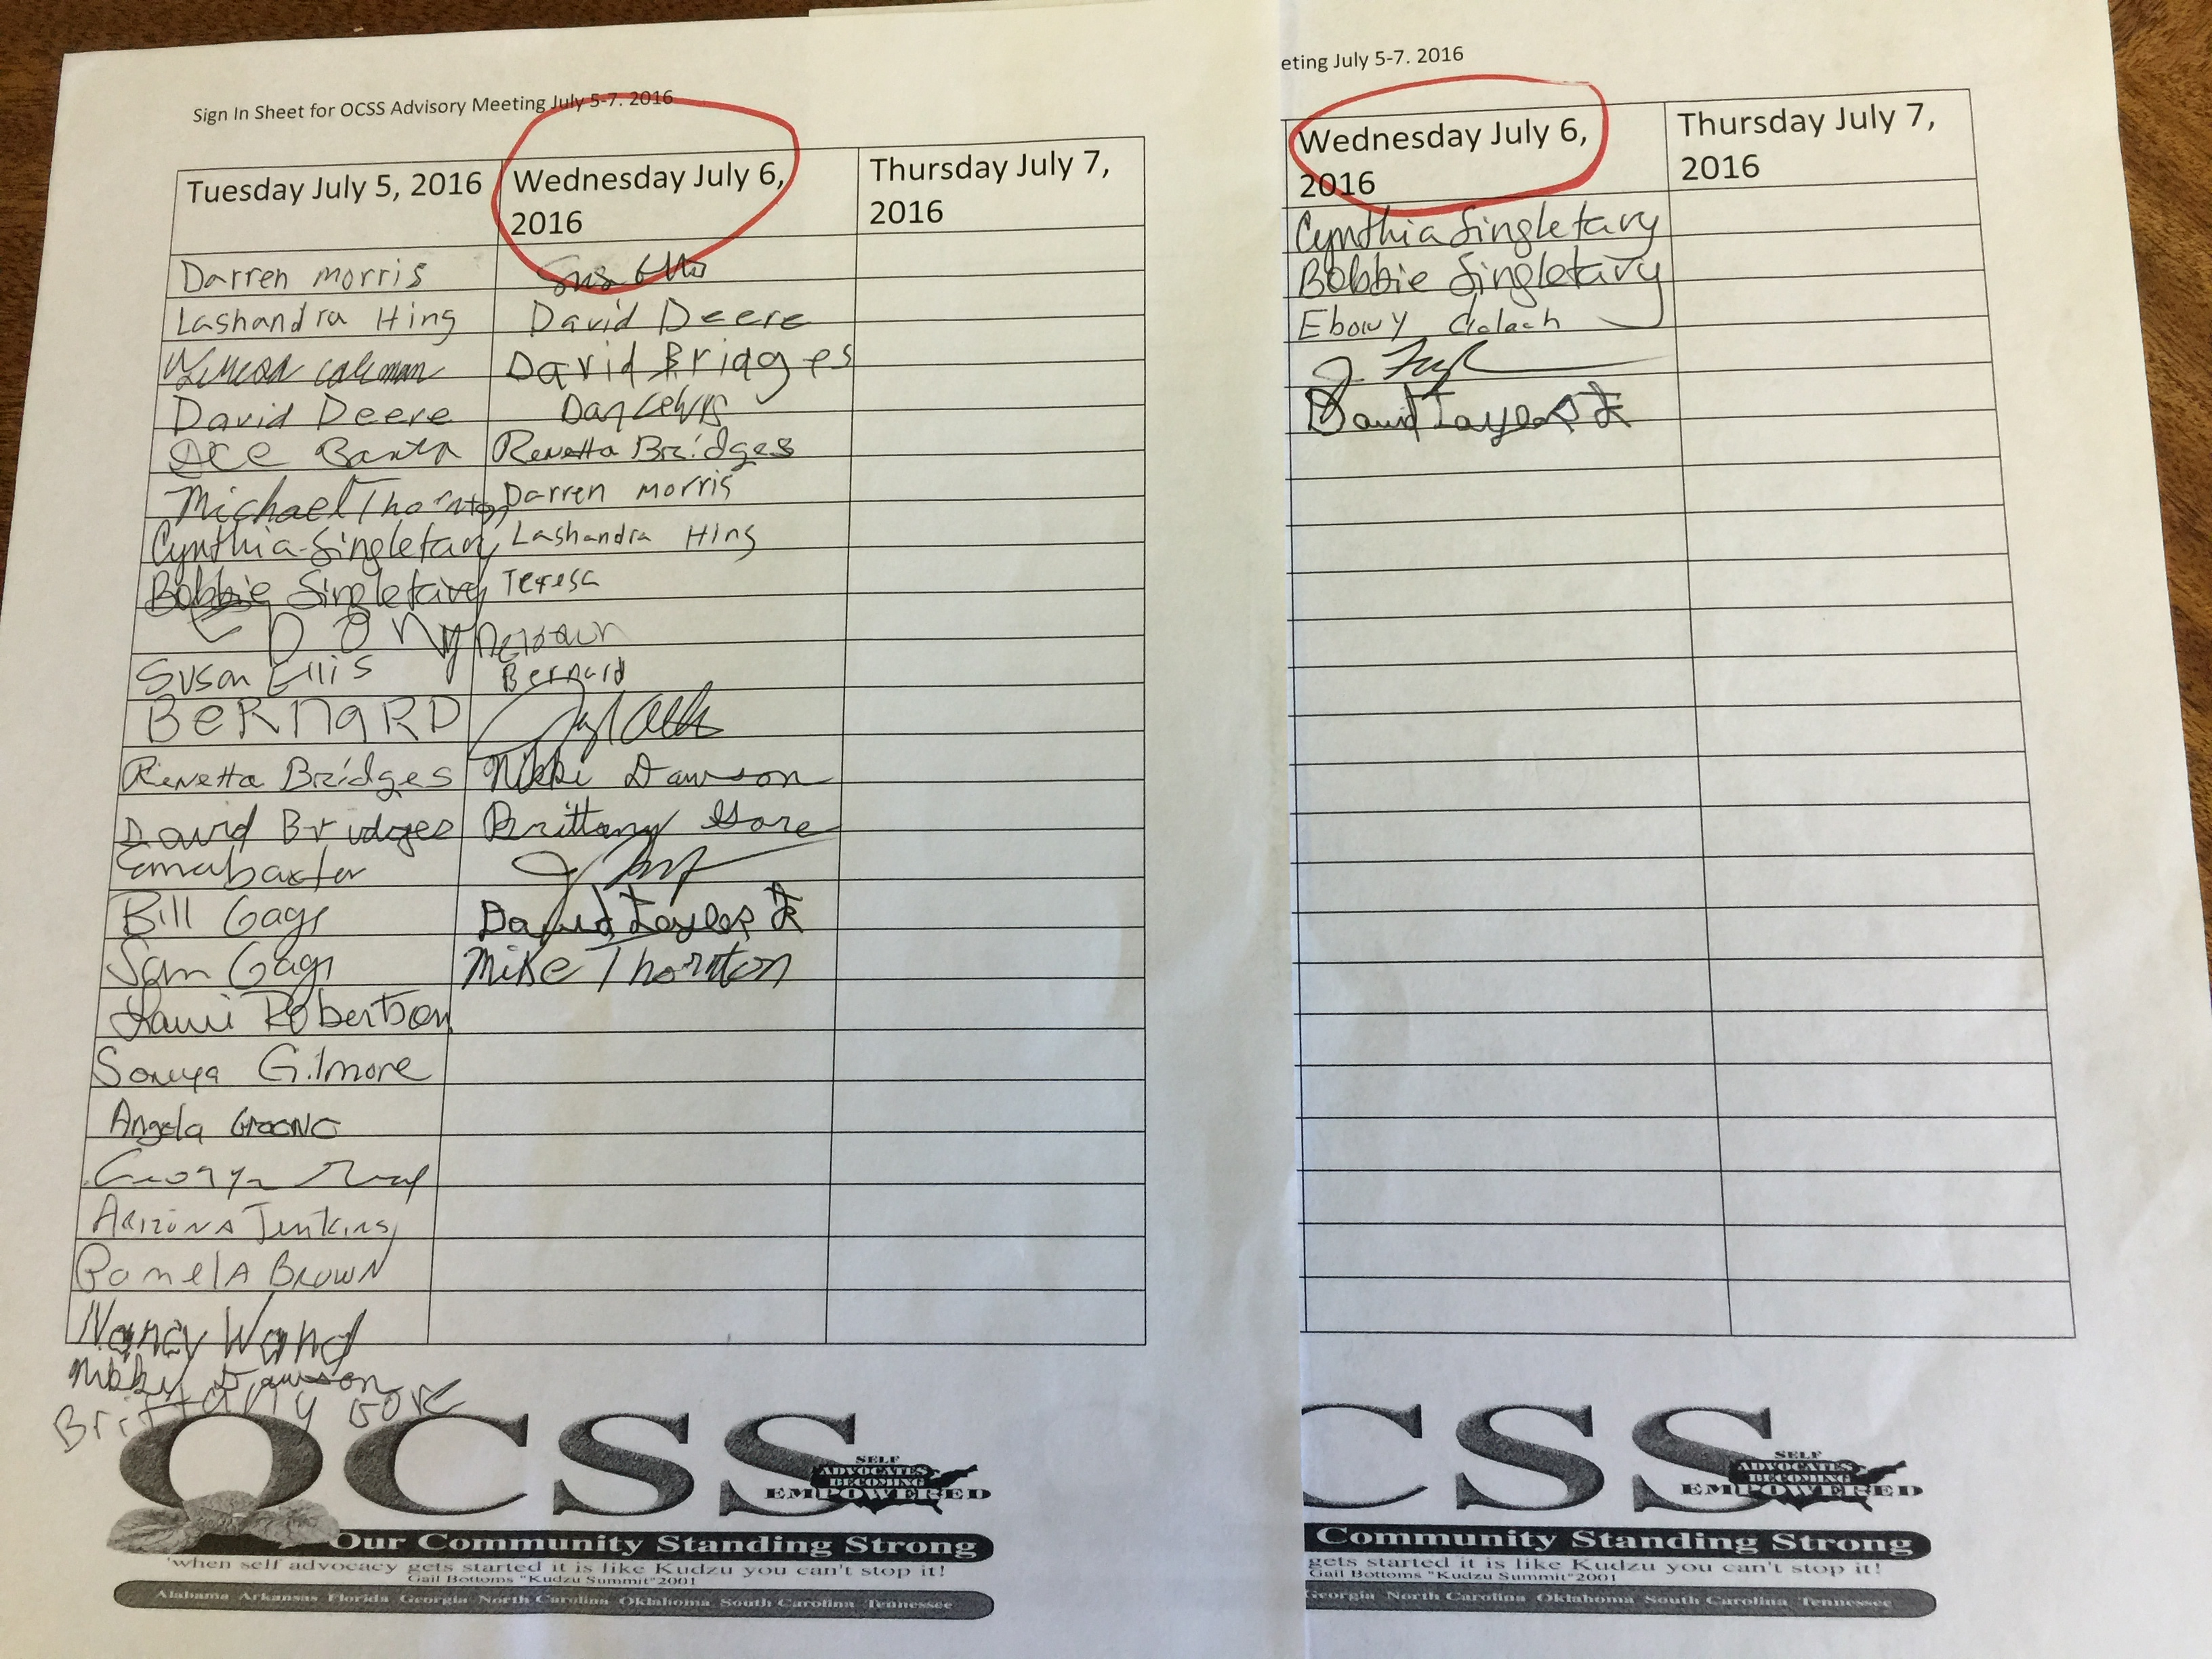 Sign In Sheet for OCSS Advisory Meeting July 5-7. 2016
Tuesday July 5, 2016
Wednesday July 6,
2016
Thursday July 7,
2016
Darren morris
Lashandra Hing
David Deere
David Deere
David Bridges
coleman
Dan Lewis
Renetta Bridges
Michael Thornton
Darren morris
Cynthia Singletary
Lashandra Hing
Bobbie Singletary
Teresa
EBONY
Susan Ellis
Bernard
BeRNaRD
Renetta Bridges
Nikki Dawson
David Bridges
Brittany Gore
baxter
Bill Gage
David Taylor Jr
Sam Gage
Mike Thornton
Robertson
Sonya Gilmore
Angela Greene
Arizona Jenkins
Pamela Brown
Nancy Ward
Nikki Dawson
Brittany Gore
OCSS
SELF
ADVOCATES
BECOMING
EMPOWERED
Our Community Standing Strong
'when self advocacy gets started it is like Kudzu you can't stop it!
Gail Bottoms "Kudzu Summit"2001
Alabama Arkansas Florida Georgia North Carolina Oklahoma South Carolina Tennessee
eting July 5-7. 2016
Wednesday July 6,
2016
Thursday July 7,
2016
Cynthia Singletary
Bobbie Singletary
Ebony
David Taylor Jr
CSS
SELF
ADVOCATES
BECOMING
EMPOWERED
Community Standing Strong
gets started it is like Kudzu you can't stop it!
Gail Bottoms "Kudzu Summit"2001
Georgia North Carolina Oklahoma South Carolina Tennessee